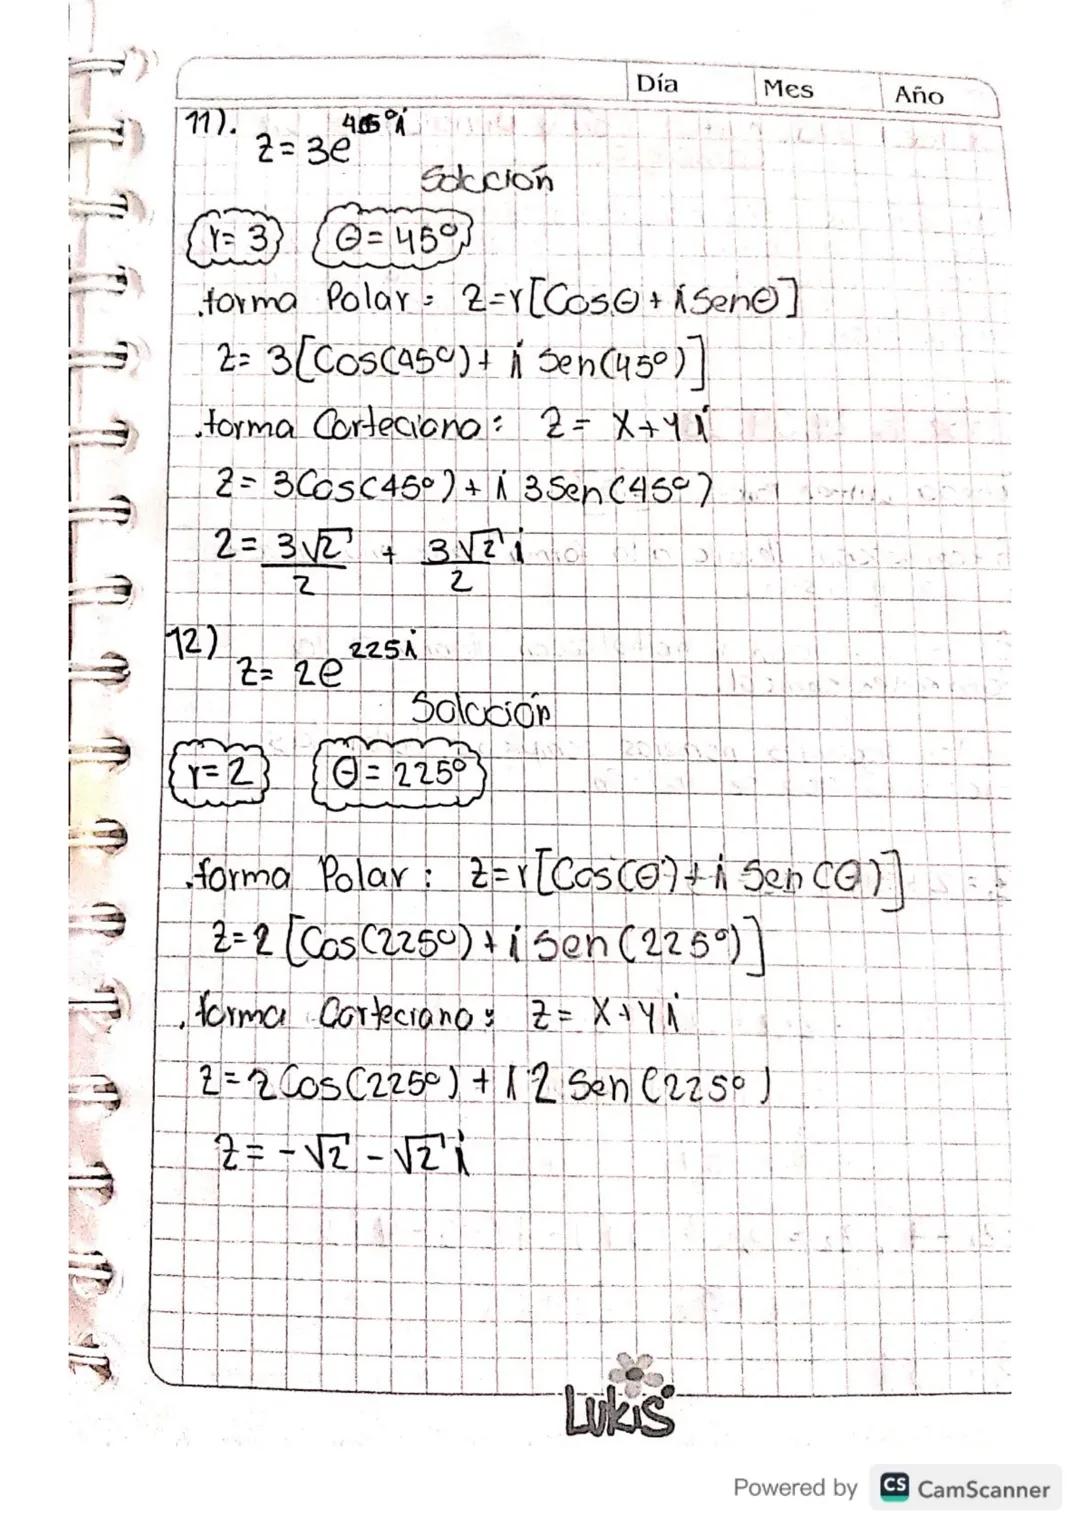 Día Mes Año
11). z = 3e^45°i
Solución
r = 3 θ = 45°
.forma Polar: z=r[Cosθ + i Senθ]
z= 3[Cos(45°) + i Sen(45°)]
.forma Carteciana: z = x+yi
z = 3Cos(45°) + i 3Sen(45°)
z = 3√2/2 + 3√2/2 i
12) z= 2e^225i
Solución
r=2 θ = 225°
.forma Polar: z=r[Cos(θ) + i Sen(θ)]
z=2[Cos(225°) + i Sen(225°)]
.forma Carteciana: z = x+yi
z=2Cos(225°) + i 2 Sen(225°)
z = -√2 - √2 i
Lukis
Powered by CS CamScanner